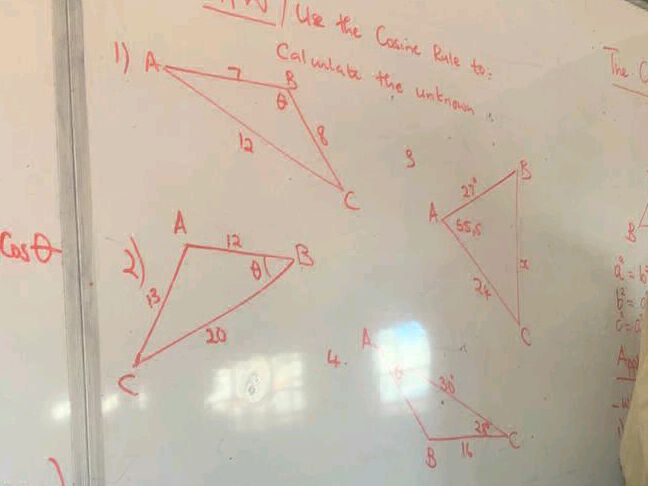 Use the Cosine Rule to:
Calculate the unknown
The
1) A 7 B
θ
12 8
C
3
B
27°
A 55,5
x
24
C
Cosθ
2) A 12 B
θ
13
20
C
4. A
30°
28° C
B 16
B
a² = b²
b² =
c² = a²